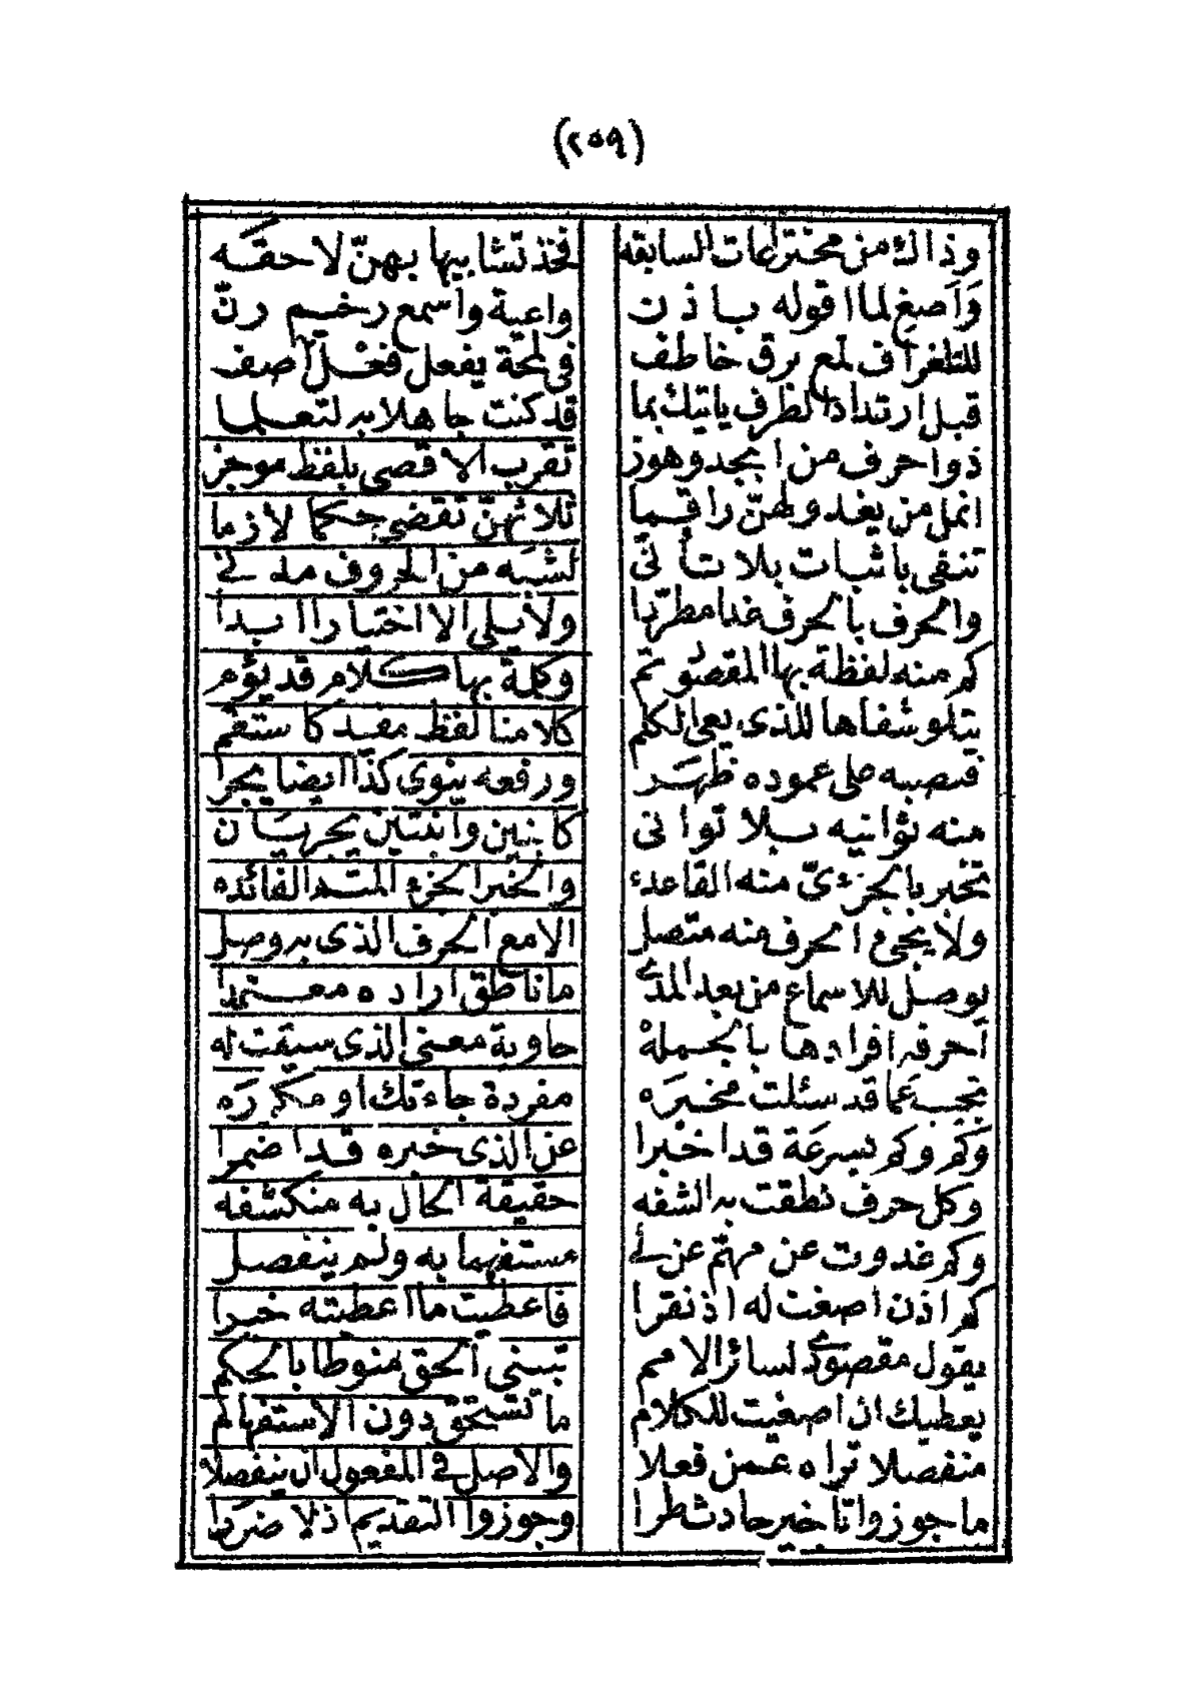 (٢٥٩)
وذاك من مخترعات السابقه فخذ تشابيها بهنّ لاحقه
وَاَصغِ لما اقوله باذن واعية واسمع رخيم رنّ
للتلغراف لمع برق خاطف فى لمحة يفعل فعْل آصف
قبل ارتداد الطرف ياتيك بما قد كنت جاهلا به لتعلما
ذوا حرف من ابجد وهوز تقرب الاقصى بلفظ موجز
انمل من يغدو لهنّ راقما ثلاثهنّ تقضى حكما لازما
تنقى باثبات بلا تأنّى لشبه من الحروف مدنى
والحرف بالحرف غدا مطرّبا ولا يلى الا اختيارا ابدا
كم منه لفظة بها المقصود تم وكلمة بها كلام قد يؤم
يتلو شفاها للذى يعى الكلم كلامنا لفظ مفيد كاستقم
فنصبه على عموده ظهر ورفعه ينوى كذا ايضا يجرا
منه ثوانيه بلا توانى كابنين وابنتين يجريان
تخبر بالجزءىّ منه القاعده والخبر الجزء المتم الفائده
ولا يجىء الحرف منه متصل الا مع الحرف الذى به وصل
يوصل للاسماع من بعد المدى ما ناطق اراده معتمدا
أحرفه افرادها بالجمله حاوية معنى الذى سيقت له
تجيب عما قد سئلت مخبره مفردة جاءتك او مكرره
وكم وكم بسرعة قد اخبرا عن الذى خبره قد اضمرا
وكل حرف نطقت به الشفه حقيقة الحال به منكشفه
وكم غدوت عن مهمّ عنّ لى مستفهما به ولم ينفصل
كم اذن اصغت له اذ نقرا فاعطيت ما اعطيته خبرا
يقول مقصودى لسائر الامم تبينى الحق منوطا بالحكم
يعطيك ان اصغيت للكلام ما تستحق دون الاستفهام
منفصلا تراه عمن فعلا والاصل فى المفعول ان ينفصلا
ما جوزوا تأخير حادث طرا وجوزوا التقديم اذ لا ضررا